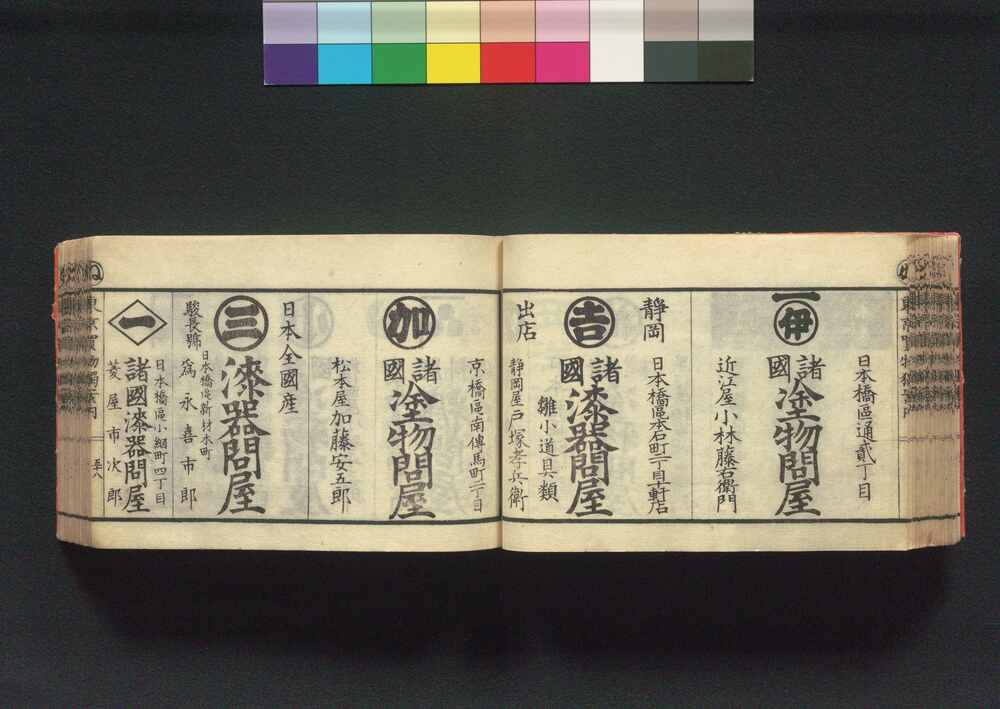 日本橋區通貳丁目
伊
諸國
塗物問屋
近江屋小林藤右衞門
靜岡
日本橋區本石町二丁目十軒店
吉
諸國
漆器問屋
雛小道具類
出店
靜岡屋戸塚孝兵衞
京橋區南傳馬町二丁目
加
諸國
塗物問屋
松本屋加藤安五郎
日本全國産
三
漆器問屋
日本橋區新材木町
駿長號
爲永喜市郎
日本橋區小網町四丁目
一
諸國漆器問屋
菱屋市次郎
ぬ
東京買物獨案内